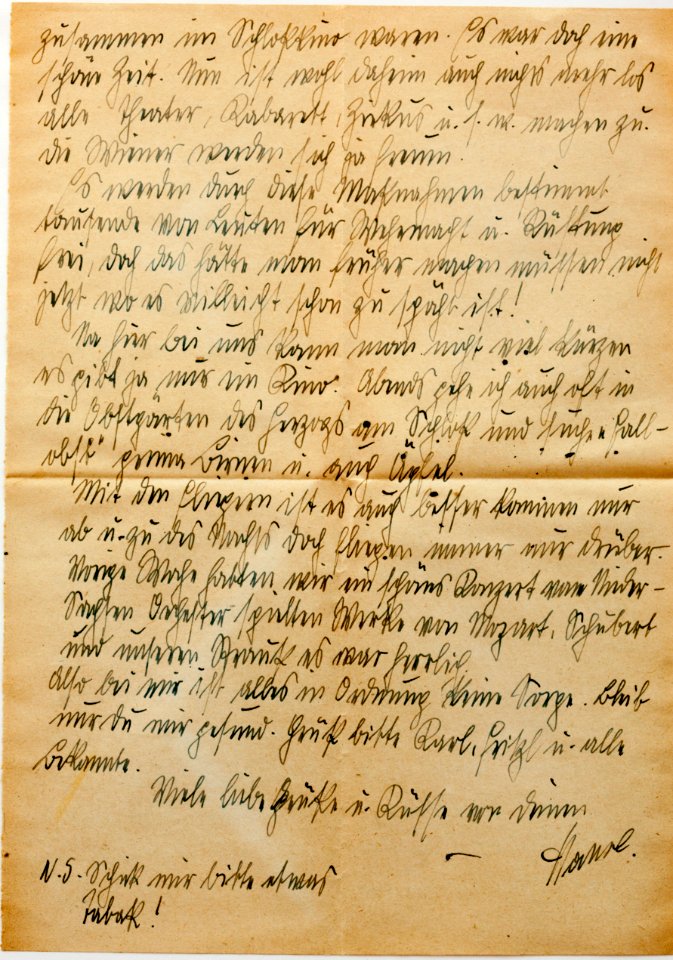 zusammen im Schloßkino waren. Es war doch eine
schöne Zeit. Nun ist wohl daheim auch nichts mehr los
alle Theater, Kabarett, Zirkus u. s. w. machen zu.
die Wiener werden sich ja freuen.
Es werden durch diese Maßnahmen bestimmt
tausende von Leuten für Wehrmacht u. Rüstung
frei, doch das hätte man früher machen müssen nicht
jetzt wo es villeicht schon zu späht ist!
Na hier bei uns kann man nicht viel kürzen
es gibt ja nur im Kino. Abends gehe ich auch oft in
die Obstgärten des Herzogs am Schloß und suche "Fall-
obst" prima Birnen u. auch Äpfel.
Mit den Fliegern ist es auch besser kommen nur
ab u. zu des Nachts doch fliegen immer nur drüber.
Vorige Woche hatten wir ein schönes Konzert vom Nieder-
Sachsen Orchester spielten Werke von Mozart, Schubert
und unseren Strauß es war herrlich.
Also bei mir ist alles in Ordnung keine Sorge. Bleib
nur du mir gesund. Grüß bitte Karl, Fritzl u. alle
Bekannte.
Viele liebe Grüße u. Küsse von deinem
N. S. Schick mir bitte etwas
Tabak!